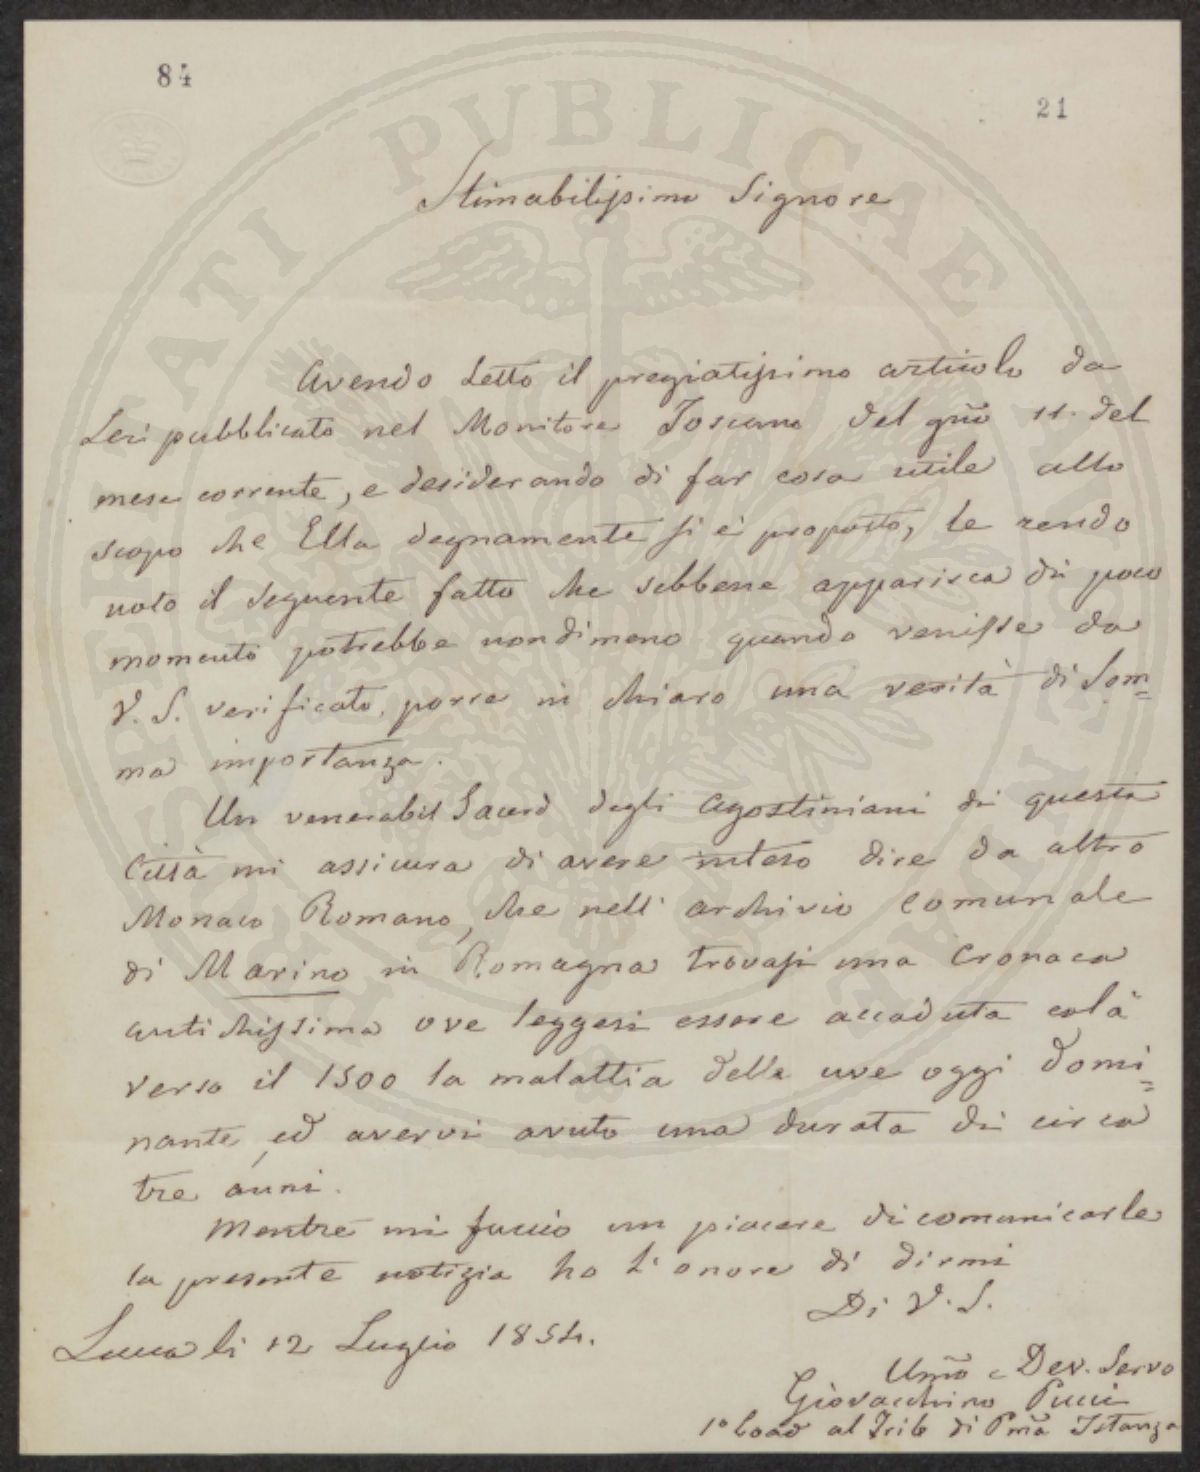 84
21
Stimabilissimo Signore
Avendo letto il pregiatissimo articolo da
Lei pubblicato nel Monitore Toscano del gno 11. del
mese corrente, e desiderando di far cosa utile allo
scopo che Ella degnamente si è proposto, le rendo
noto il seguente fatto che sebbene apparisca di poco
momento potrebbe nondimeno quando venisse da
V. S. verificato, porre in chiaro una verità di som=
ma importanza.
Un venerabil Sacerd degli Agostiniani di questa
Città mi assicura di avere inteso dire da altro
Monaco Romano, che nell' archivio Comunale
di Marino in Romagna trovasi una Cronaca
antichissima ove leggesi essere accaduta colà
verso il 1500 la malattia delle uve oggi domi=
nante, ed avervi avuto una durata di circa
tre anni.
Mentre mi faccio un piacere di comunicarle
la presente notizia ho l' onore di dirmi
Di V. S.
Lucca li 12 Luglio 1854.
Umo e Dev. Servo
Giovacchino Pucci
1º Coad al Trib di Pma Istanza
REI PUBLICAE